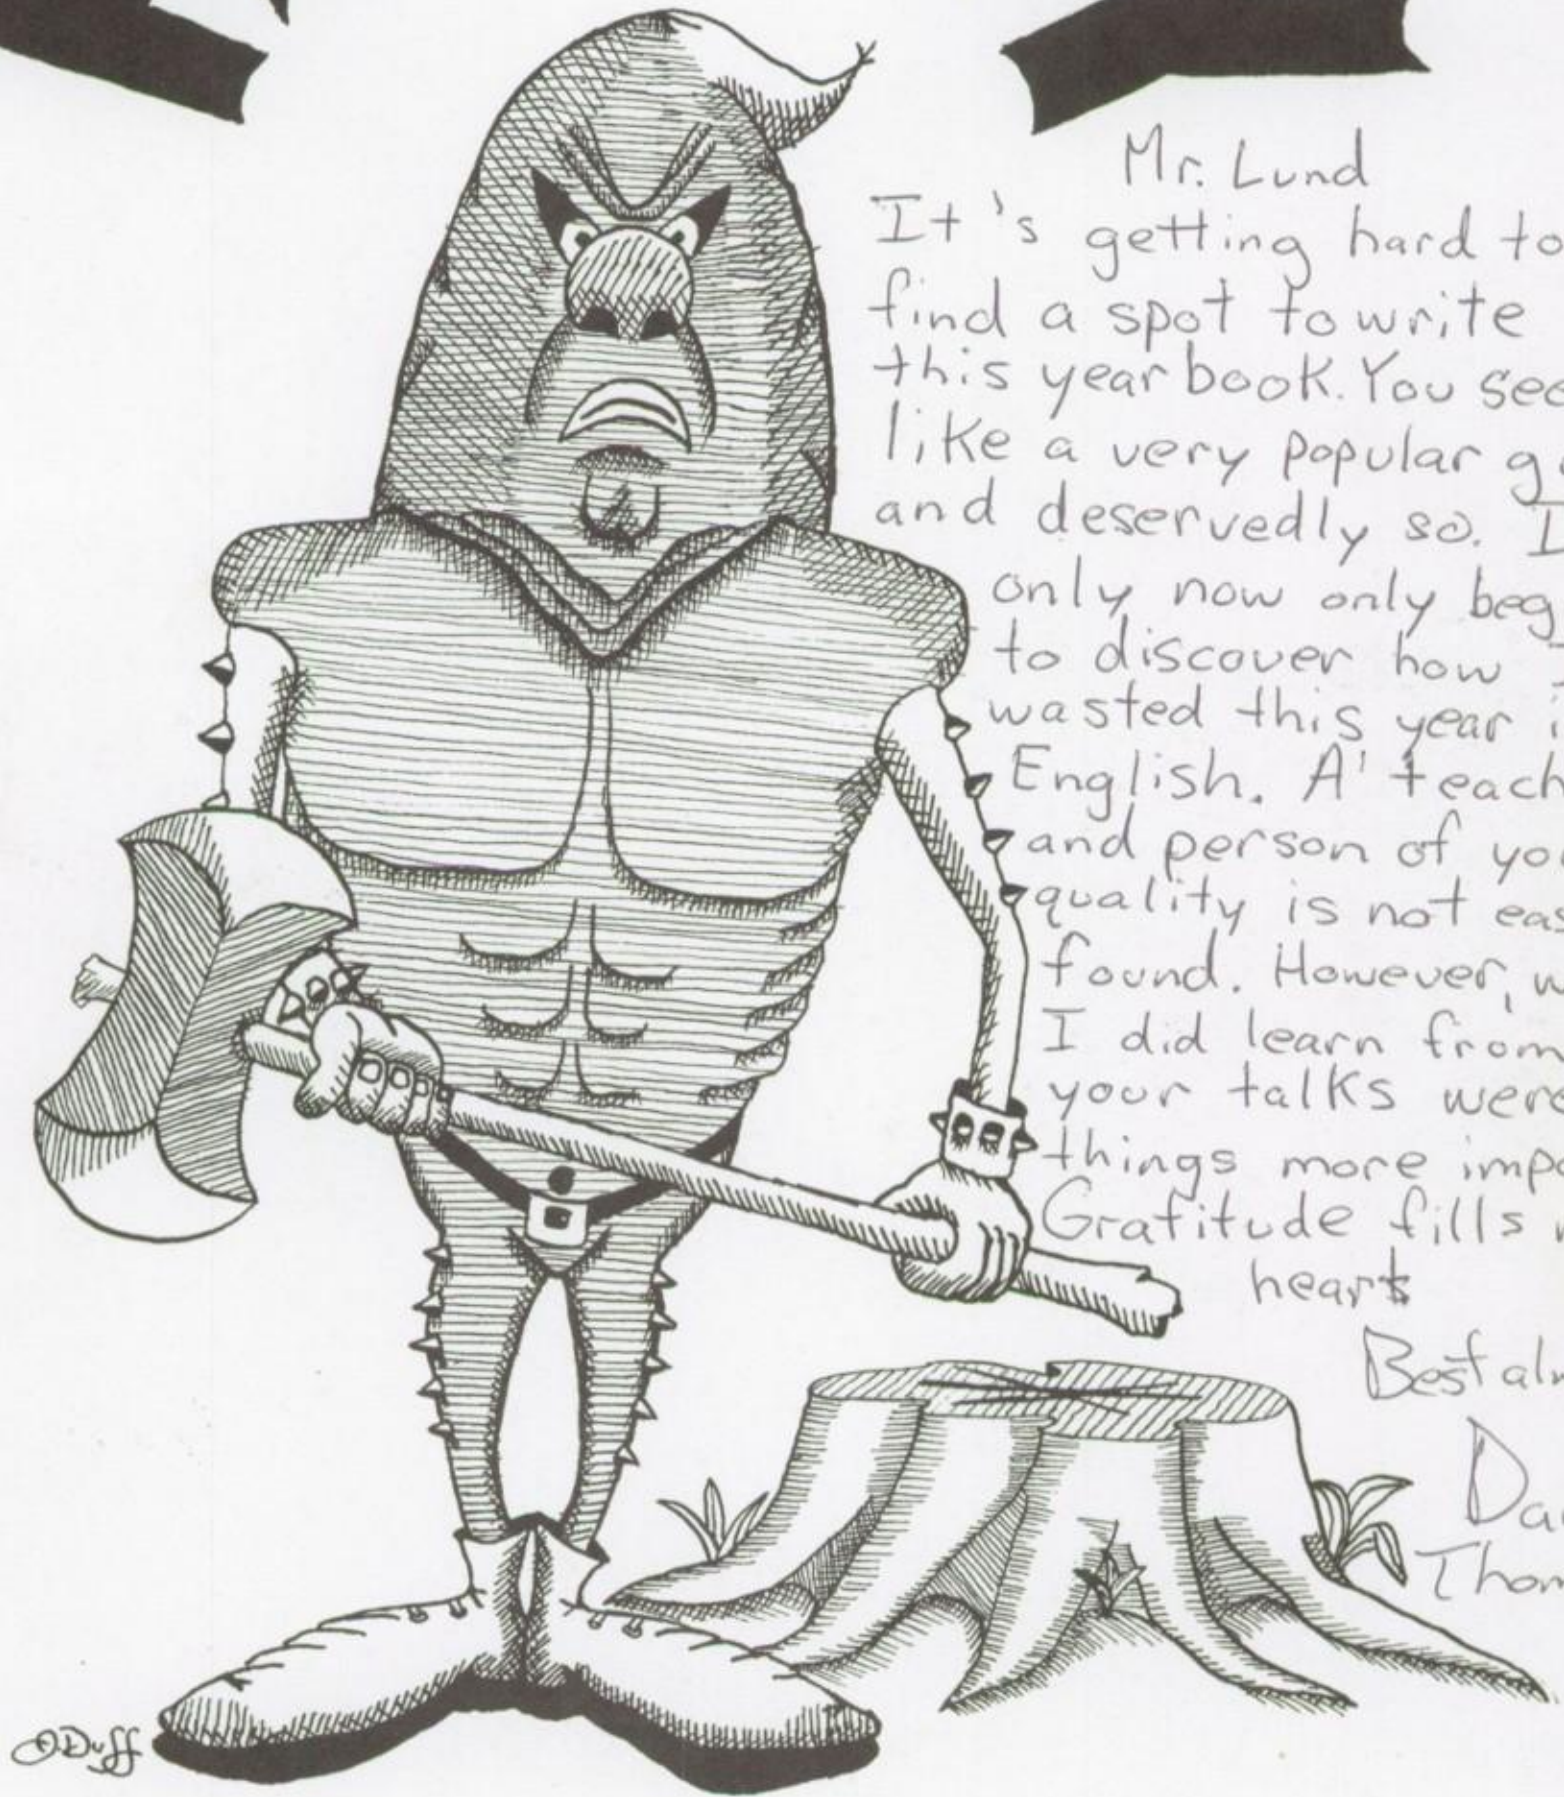 Mr. Lund
It's getting hard to
find a spot to write
this yearbook. You
like a very popular
and deservedly so.
only now only
to discover how
wasted this year
English. A'
and person of
quality is not
found. However,
I did learn from
your talks
things more
Gratitude fills
heart
Best
ODuff